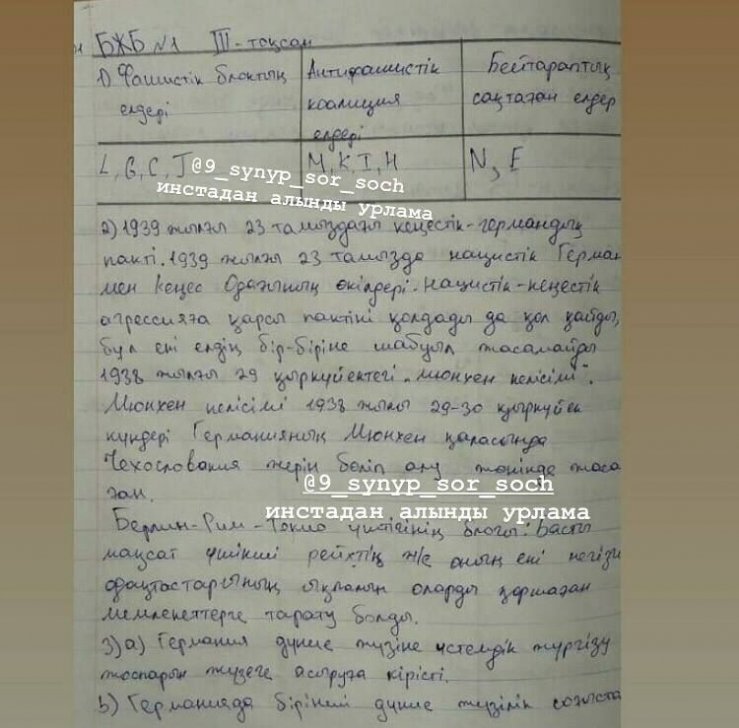 БЖБ №1 III-тоқсан
1) Фашистік блоктың елдері
Антифашистік коалиция елдері
Бейтараптық сақтаған елдер
L, G, C, J
M, K, I, H
N, E
@9_synyp_sor_soch
инстадан алынды урлама
2) 1939 жылғы 23 тамыздағы кеңестік-германдық
пакті. 1939 жылы 23 тамызда нацистік Герман
мен Кеңес Одағының өкілдері. Нацистік-кеңестік
агрессияға қарсы пактіні қолдады да қол қойды,
бұл екі елдің бір-біріне шабуыл жасамайды
1938 жылғы 29 қыркүйектегі "Мюнхен келісімі".
Мюнхен келісімі 1938 жылы 29-30 қыркүйек
күндері Германияның Мюнхен қаласында
Чехословакия жерін бөліп алу жөнінде жаса
ған.
@9_synyp_sor_soch
инстадан алынды урлама
Берлин-Рим-Токио үштігінің блогы: Басты
мақсат үшінші рейхтің ж/е оның екі негізгі
одақтастарының ықпалын оларды қоршаған
мемлекеттерге тарату болды.
3) а) Германия дүние жүзіне үстемдік жүргізу
жоспарын жүзеге асыруға кірісті.
b) Германияда бірінші дүние жүзілік соғыста